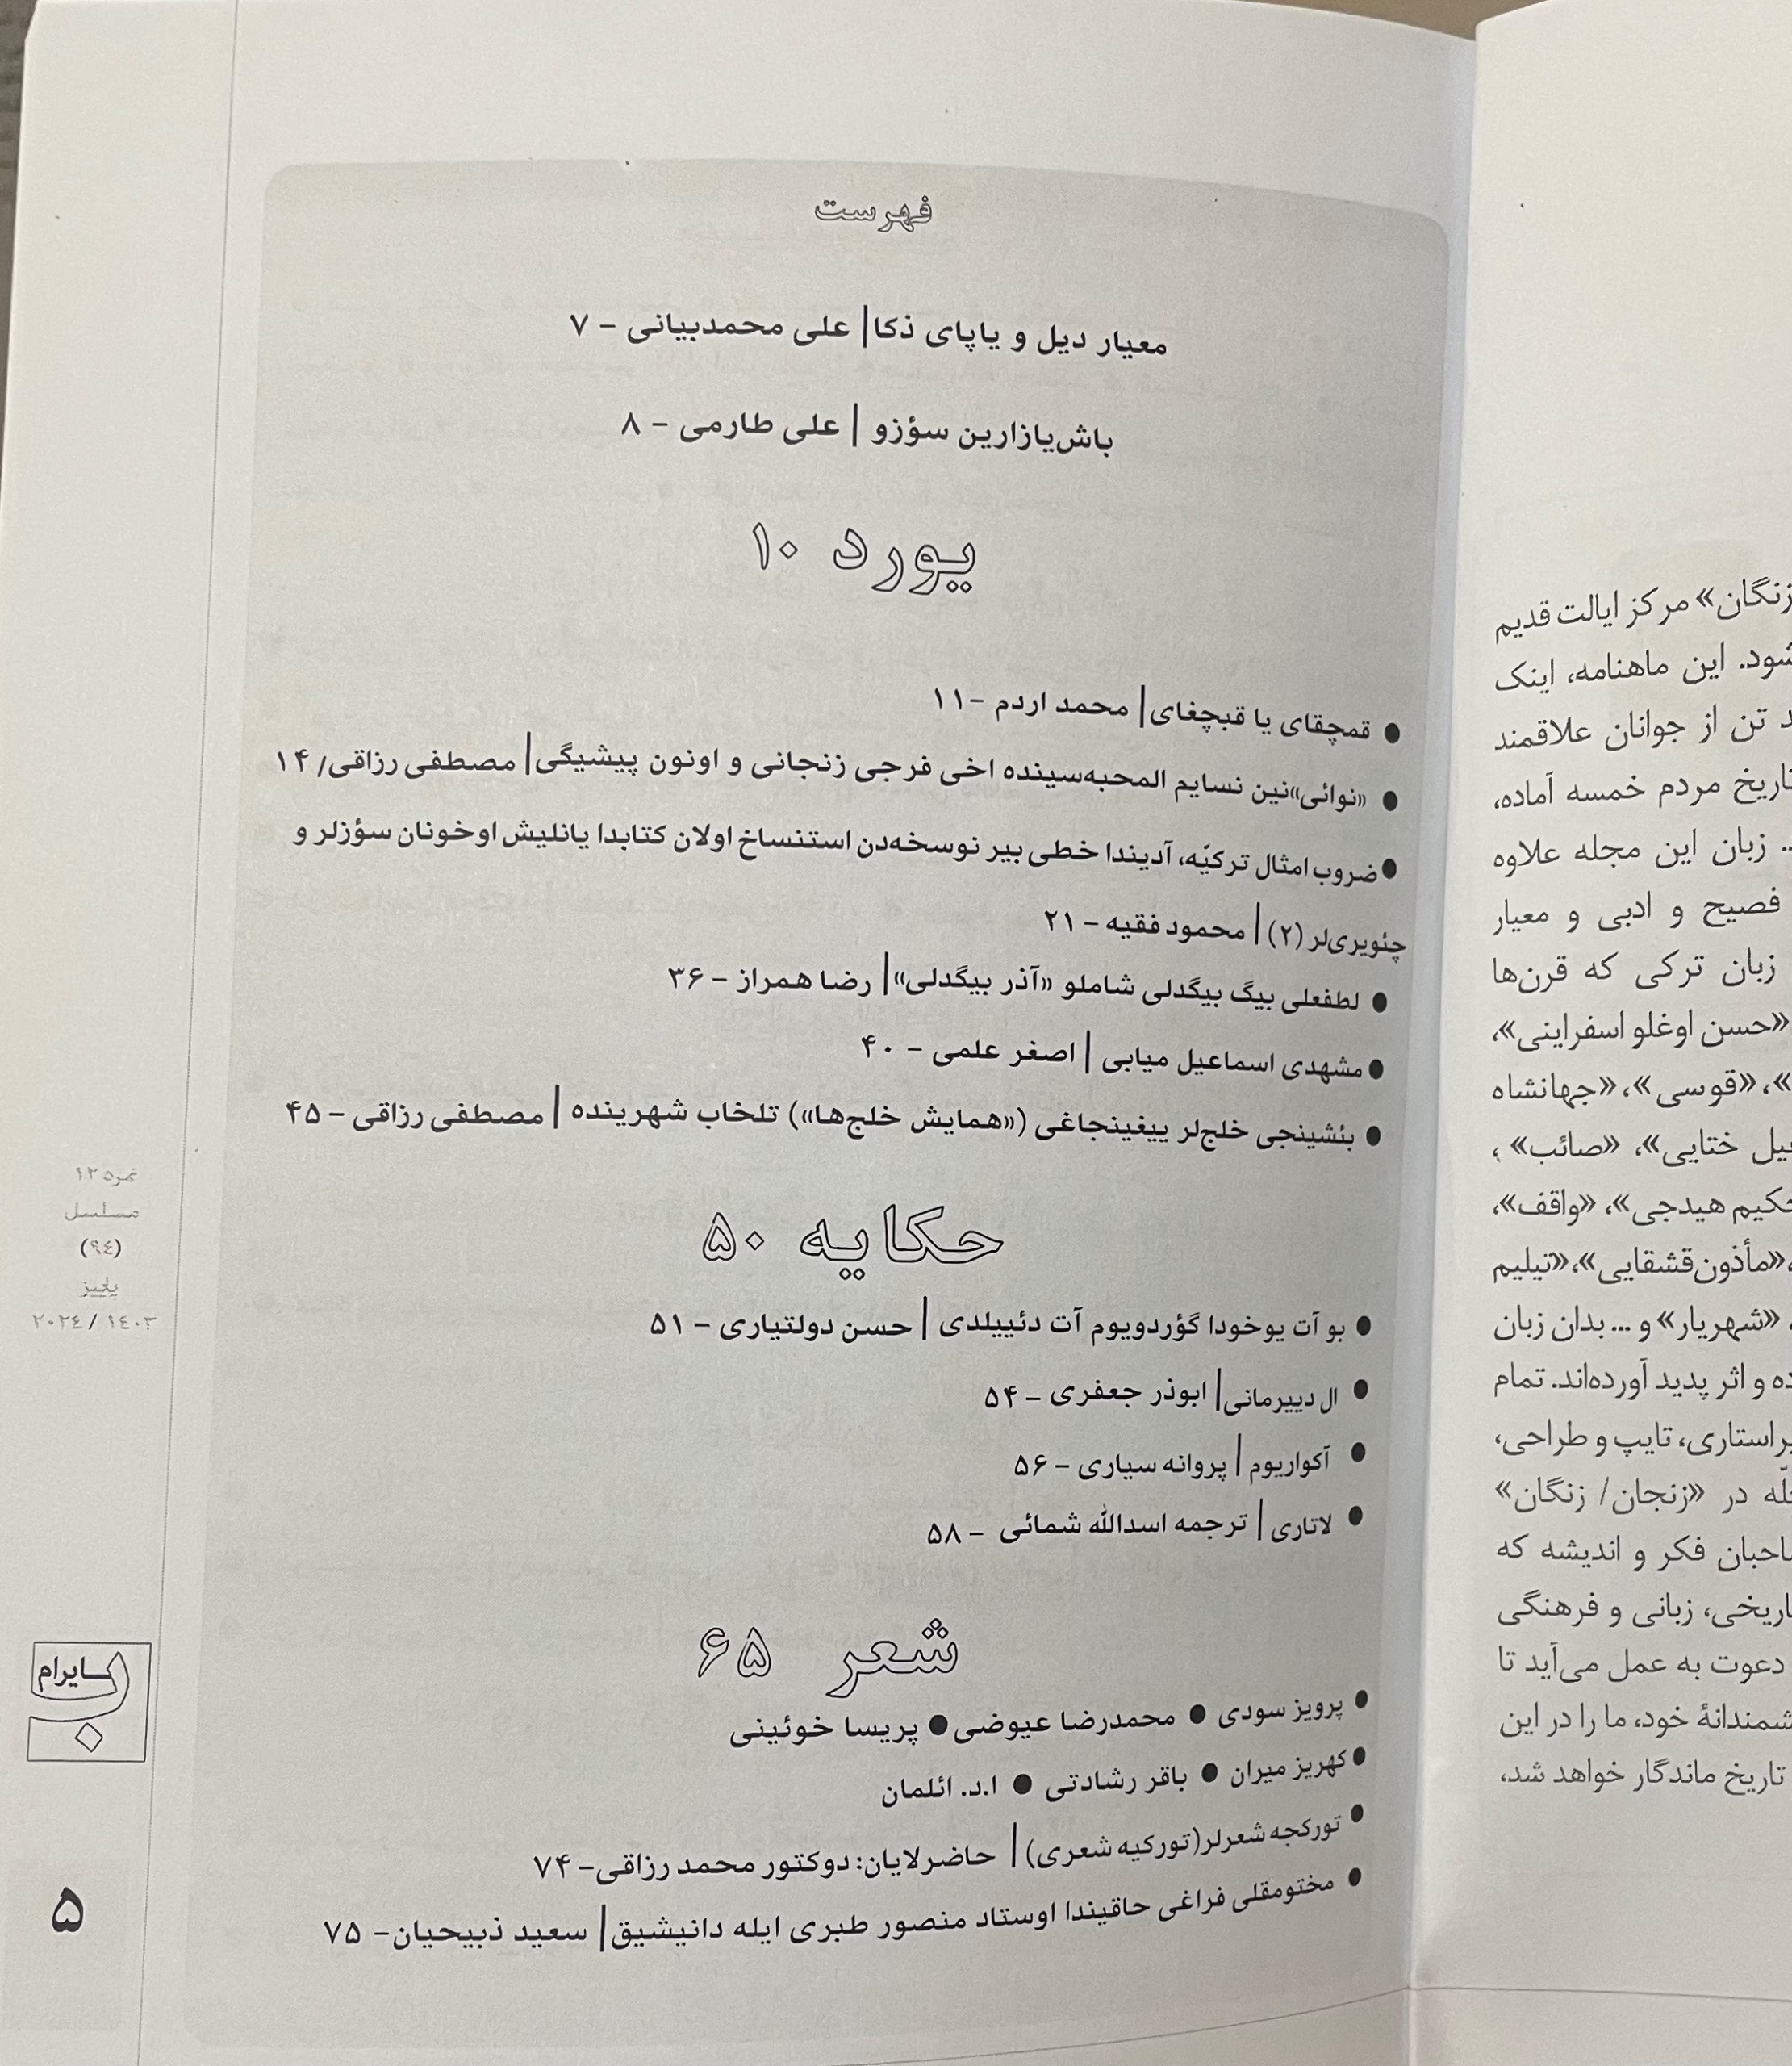 فهرست
معیار دیل و یاپای ذکا| علی محمدبیانی – ۷
باش‌یازارین سؤزو | علی طارمی – ۸
یورد ۱۰
● قمچقای یا قبچغای| محمد اردم –۱۱
● «نوائی»نین نسایم المحبه‌سینده اخی فرجی زنجانی و اونون پیشیگی| مصطفی رزاقی/ ۱۴
●ضروب امثال ترکیّه، آدیندا خطی بیر نوسخه‌دن استنساخ اولان کتابدا یانلیش اوخونان سؤزلر و
چئویری‌لر (۲) | محمود فقیه – ۲۱
● لطفعلی بیگ بیگدلی شاملو «آذر بیگدلی»| رضا همراز – ۳۶
●مشهدی اسماعیل میابی | اصغر علمی – ۴۰
● بئشینجی خلج‌لر ییغینجاغی («همایش خلج‌ها») تلخاب شهرینده | مصطفی رزاقی – ۴۵
حکایه ۵۰
● بو آت یوخودا گؤردویوم آت دئییلدی | حسن دولتیاری – ۵۱
● ال دییرمانی| ابوذر جعفری – ۵۴
● آکواریوم | پروانه سیاری – ۵۶
● لاتاری | ترجمه اسدالله شمائی – ۵۸
شعر ۶۵
● پرویز سودی ● محمدرضا عیوضی ● پریسا خوئینی
● کهریز میران ● باقر رشادتی ● ا.د. ائلمان
● تورکجه شعرلر(تورکیه شعری) | حاضرلایان: دوکتور محمد رزاقی– ۷۴
● مختومقلی فراغی حاقیندا اوستاد منصور طبری ایله دانیشیق| سعید ذبیحیان– ۷۵
نمره ۱۲
مسلسل
(۹٤)
پاییز
۱٤۰۳ / ۲۰۲٤
بایرام
۵
زنگان» مرکز ایالت قدیم
شود. این ماهنامه، اینک
تن از جوانان علاقمند
تاریخ مردم خمسه آماده،
... زبان این مجله علاوه
فصیح و ادبی و معیار
زبان ترکی که قرن‌ها
«حسن اوغلو اسفراینی»،
»، «قوسی»، «جهانشاه
ختایی»، «صائب» ،
حکیم هیدجی»، «واقف»،
، «مأذون قشقایی»، «تیلیم
، «شهریار» و ... بدان زبان
و اثر پدید آورده‌اند. تمام
ویراستاری، تایپ و طراحی،
در «زنجان/ زنگان»
صاحبان فکر و اندیشه که
تاریخی، زبانی و فرهنگی
دعوت به عمل می‌آید تا
خود، ما را در این
تاریخ ماندگار خواهد شد،